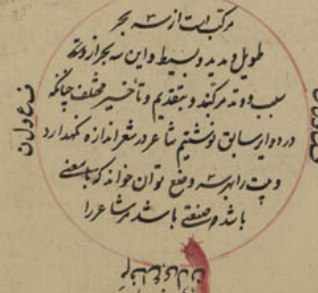 مرکب است از سه بحر
طویل و مدید و بسیط و این سه بحر از دو
سبب و وتد مرکبند و بتقدیم و تأخیر مختلف چنانکه
در دوایر سابق نوشتیم شاعر در شعر اندازه نگهدارد
و بیت را بهر سه وضع توان خواند که با معنی
باشد و صنعتی باشد مر شاعر را